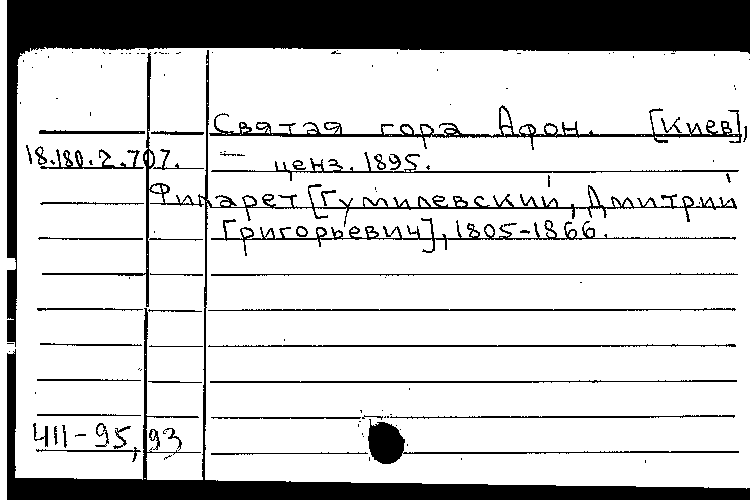 Святая гора Афон. [Киев],
18.180.2.707. — ценз. 1895.
Филарет [Гумилевский, Дмитрий
Григорьевич], 1805-1866.
411-95,93